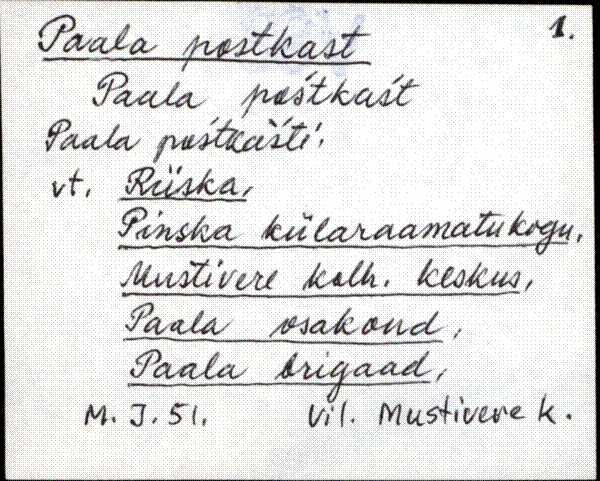 1.
Paala postkast
Paala pośtkaśt
Paala pośtkaśti,
vt. Riiska,
Pinska külaraamatukogu,
Mustivere kolh. keskus,
Paala osakond,
Paala brigaad,
M. J. 51. Vil. Mustivere k.